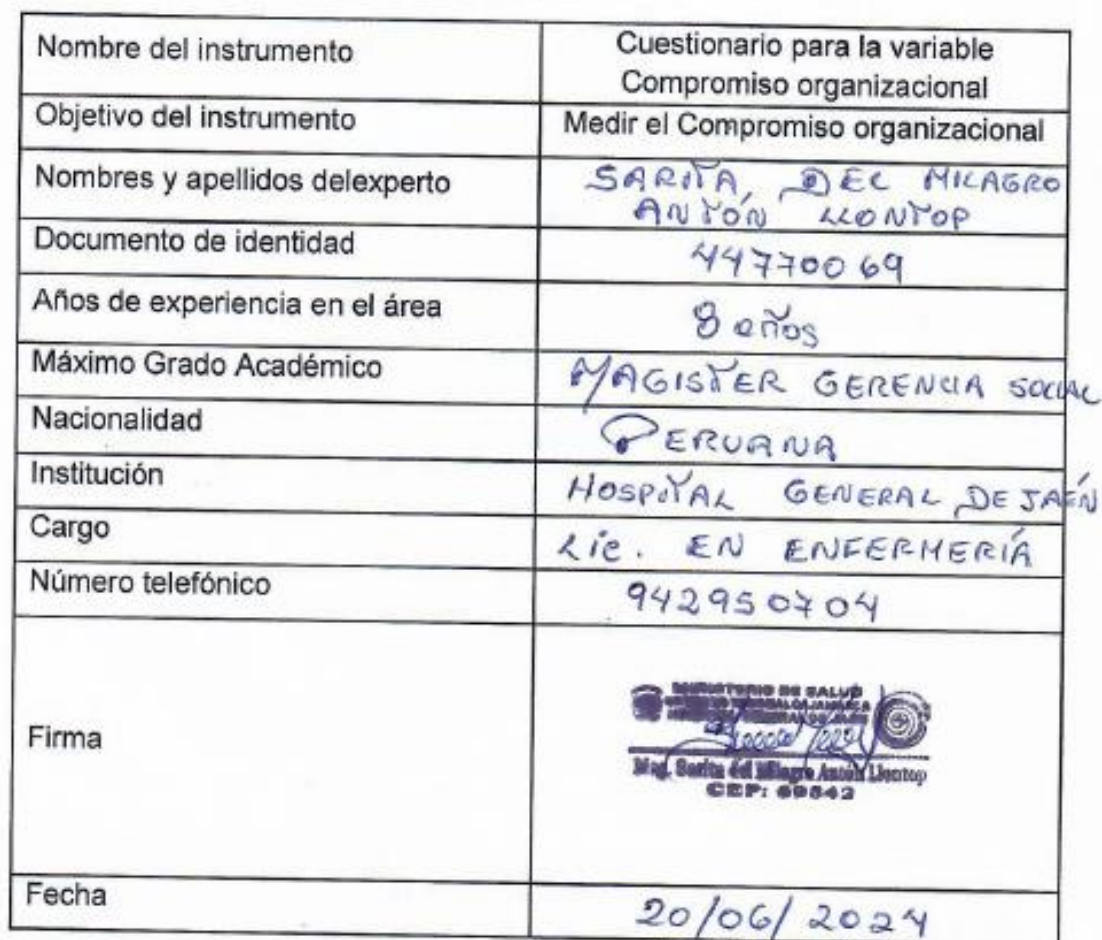 Nombre del instrumento
Cuestionario para la variable
Compromiso organizacional
Objetivo del instrumento
Medir el Compromiso organizacional
Nombres y apellidos delexperto
SARITA, DEL MILAGRO
ANTÓN LLONTOP
Documento de identidad
44770069
Años de experiencia en el área
8 años
Máximo Grado Académico
MAGISTER GERENCIA SOCIAL
Nacionalidad
PERUANA
Institución
HOSPITAL GENERAL DE JAÉN
Cargo
Lic. EN ENFERMERÍA
Número telefónico
942950704
Firma
MINISTERIO DE SALUD
Mag. Sarita del Milagro Antón Llontop
CEP: 69542
Fecha
20/06/2024